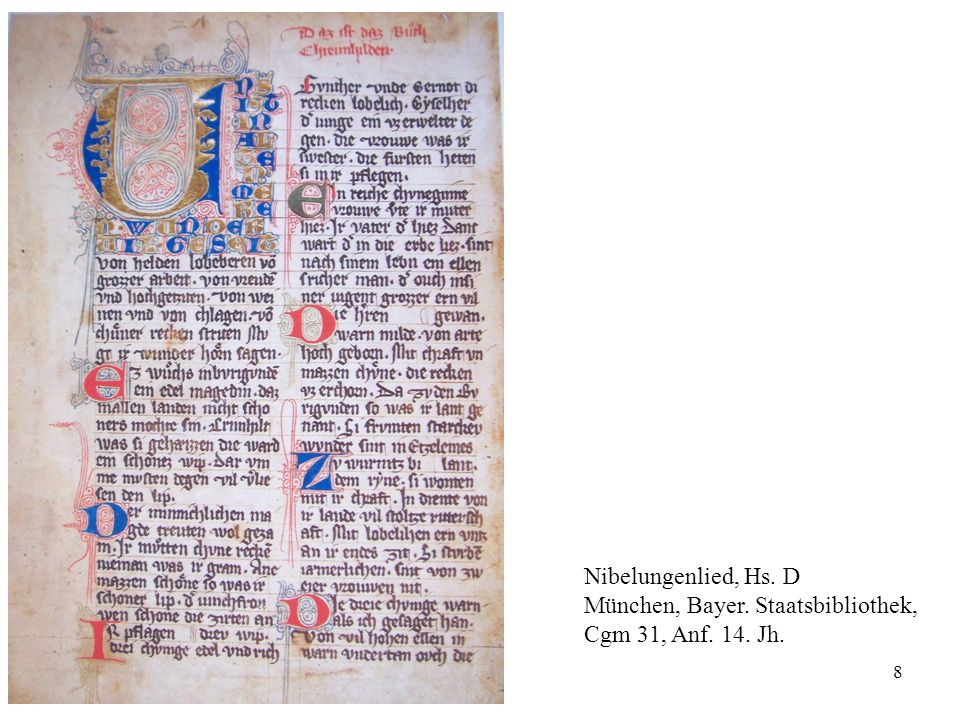 Daz ist daz Bůch
Chreimhilden
VNS
IST
IN A
LTE
N ME
RE
N. WUNDER
UIL GESEIT
von helden lobeberen võ
grozzer arbeit. von vreudẽ
vnd hochgeziten. von wei
nen vnd von chlagen. võ
chůner recken striten Mu
gt ir wunder hőrn sagen.
EZ wůchs inburigundẽ
ein edel magedin. daz
in allen landen nicht scho
ners mochte sin. Crimhilt
was si geheizzen die ward
ein schőnez wip. dar vm
me mvsten degen vil v'lie
sen den lip.
Der minnichlichen ma
gde treuten wol geza
m. Ir můtten chvne reckẽ
nieman was ir gram. Ane
mazzen schőne so was ir
schoner lip. d' iunchfron
wen schone die zirten an
IR pflagen drey wip.
drei chvnige edel vnd rich
Gvnther vnde Gernot di
recken lobelich. Gyselher
d' iunge ein vz erwelter de
gen. die vrouwe was ir
swester. die fursten heten
si in ir pflegen.
Ein reiche chvneginne
vrouwe vte ir muter
hiez. Ir vater d' hiez Danc
wart d' in die erbe liez. sint
nach sinem lebn ein ellen
s richer man. d' ouch in si
ner iugent grozzer ern vil
Die h'ren gewan.
warn milde. von arte
hoch geborn. Mit chraft vn
mazzen chvne. die recken
vz erchorn. Da zv den Bv
rigvnden so was ir lant ge
nant. Si frvmten starckev
wvnder sint in Etzelemes
Zv wurmtz bi lant.
dem ryne. si wonten
mit ir chraft. In diente von
ir lande vil stoltze rittersch
aft. Mit lobelihen ern vntz
an ir endes zit. Si sturbẽ
iæmerlichen. sint von zw
eier vrouwen nit.
Die dreie chvnige warn
als ich gesaget han.
von vil hohen ellen in
warn vndertan ovch die
Nibelungenlied, Hs. D
München, Bayer. Staatsbibliothek,
Cgm 31, Anf. 14. Jh.
8